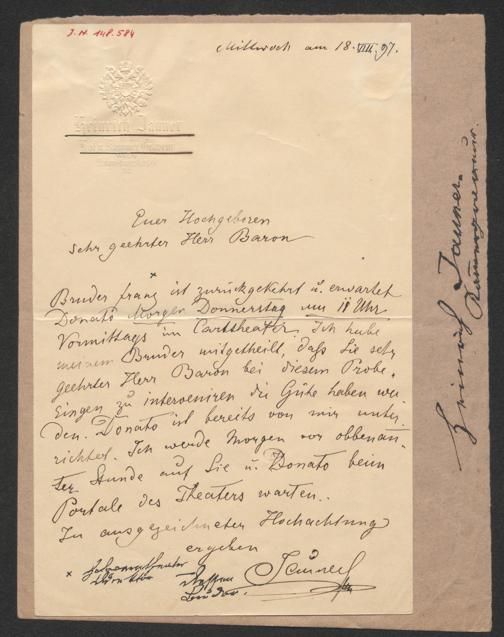 J.N. 148.584
Mittwoch am 18. VIII. 97.
Heinrich Jauner
Euer Hochgeboren
sehr geehrter Herr Baron
Bruder franz ist zurückgekehrt u. erwartet
Donato Morgen Donnerstag um 11 Uhr
Vormittags im Carltheater. Ich habe
meinem Bruder mitgetheilt, daß Sie sehr
geehrter Herr Baron bei diesem Probe-
Singen zu interveniren die Güte haben wer-
den. Donato ist bereits von mir unter-
richtet. Ich werde Morgen vor obbenan-
ter Stunde auf Sie u. Donato beim
Portale des Theaters warten..
In ausgezeichneter Hochachtung
ergeben
Jauner
x
Direktor
Dessen
Bruder.
Heinrich Jauner